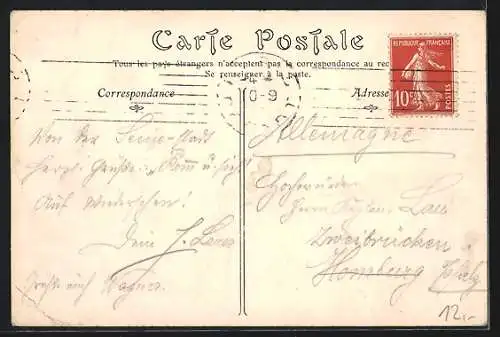 Carte Postale
Tous les pays étrangers n'acceptent pas la correspondance au rec
Se renseigner à la poste.
Correspondance
Adresse
REPUBLIQUE FRANÇAISE
10c
POSTES
4
0-9
Allemagne
Von der Seine-Stadt
herzl. Grüße. „Komm u. sieh!"
Auf Wiedersehen!
Dein J.
Grüße auch Wagner.
Hochwürden
Herrn Kaplan
Zweibrücken
Homburg Pfalz
12,-